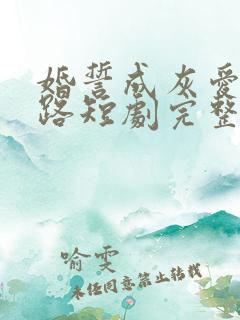 婚誓成灰愛
路短劇完整
喻雯
未经同意禁止转载